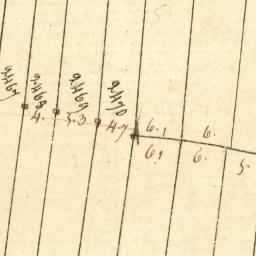 2467 2468 2469 2470
4. 5.3 4.7 6.1 6.
6.1 6. 5.